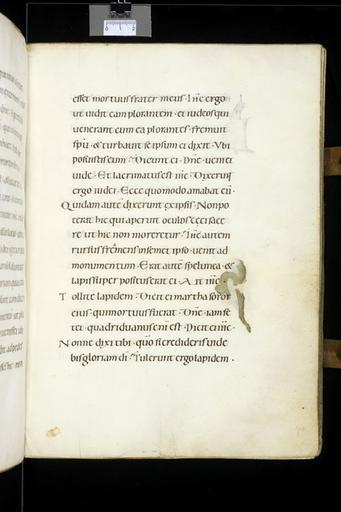 esset mortuus frater meus · Ihc̄ ergo
ut uidit eam plorantem · et iudeos qui
uenerant cum ea plorantes · fremuit
spū · & turbauit se ipsum et dixit · Vbi
posuistis eum · Dicunt ei · Dn̄e · ueni et
uide · Et lacrimatus est ihc̄ · Dixerunt
ergo iudei · Ecce quomodo amabat eū ·
Quidam autē dixerunt ex ipsis · Non po
terat hic qui aperuit oculos ceci face
re ut hic non moreretur · Ihc̄ autem
rursus fremens in semet ipso · uenit ad
monumentum · Erat autē spelunca · &
lapis super positus erat ei · Ait ihc̄ ·
Tollite lapidem · Dicit ei martha soror
eius · qui mortuus fuerat · Dn̄e · iam fe
tet · quadriduanus enī est · Dicit ei ihc̄ ·
Nonne dixi tibi · quō si credideris uide
bis gloriam dī · Tulerunt ergo lapidem ·